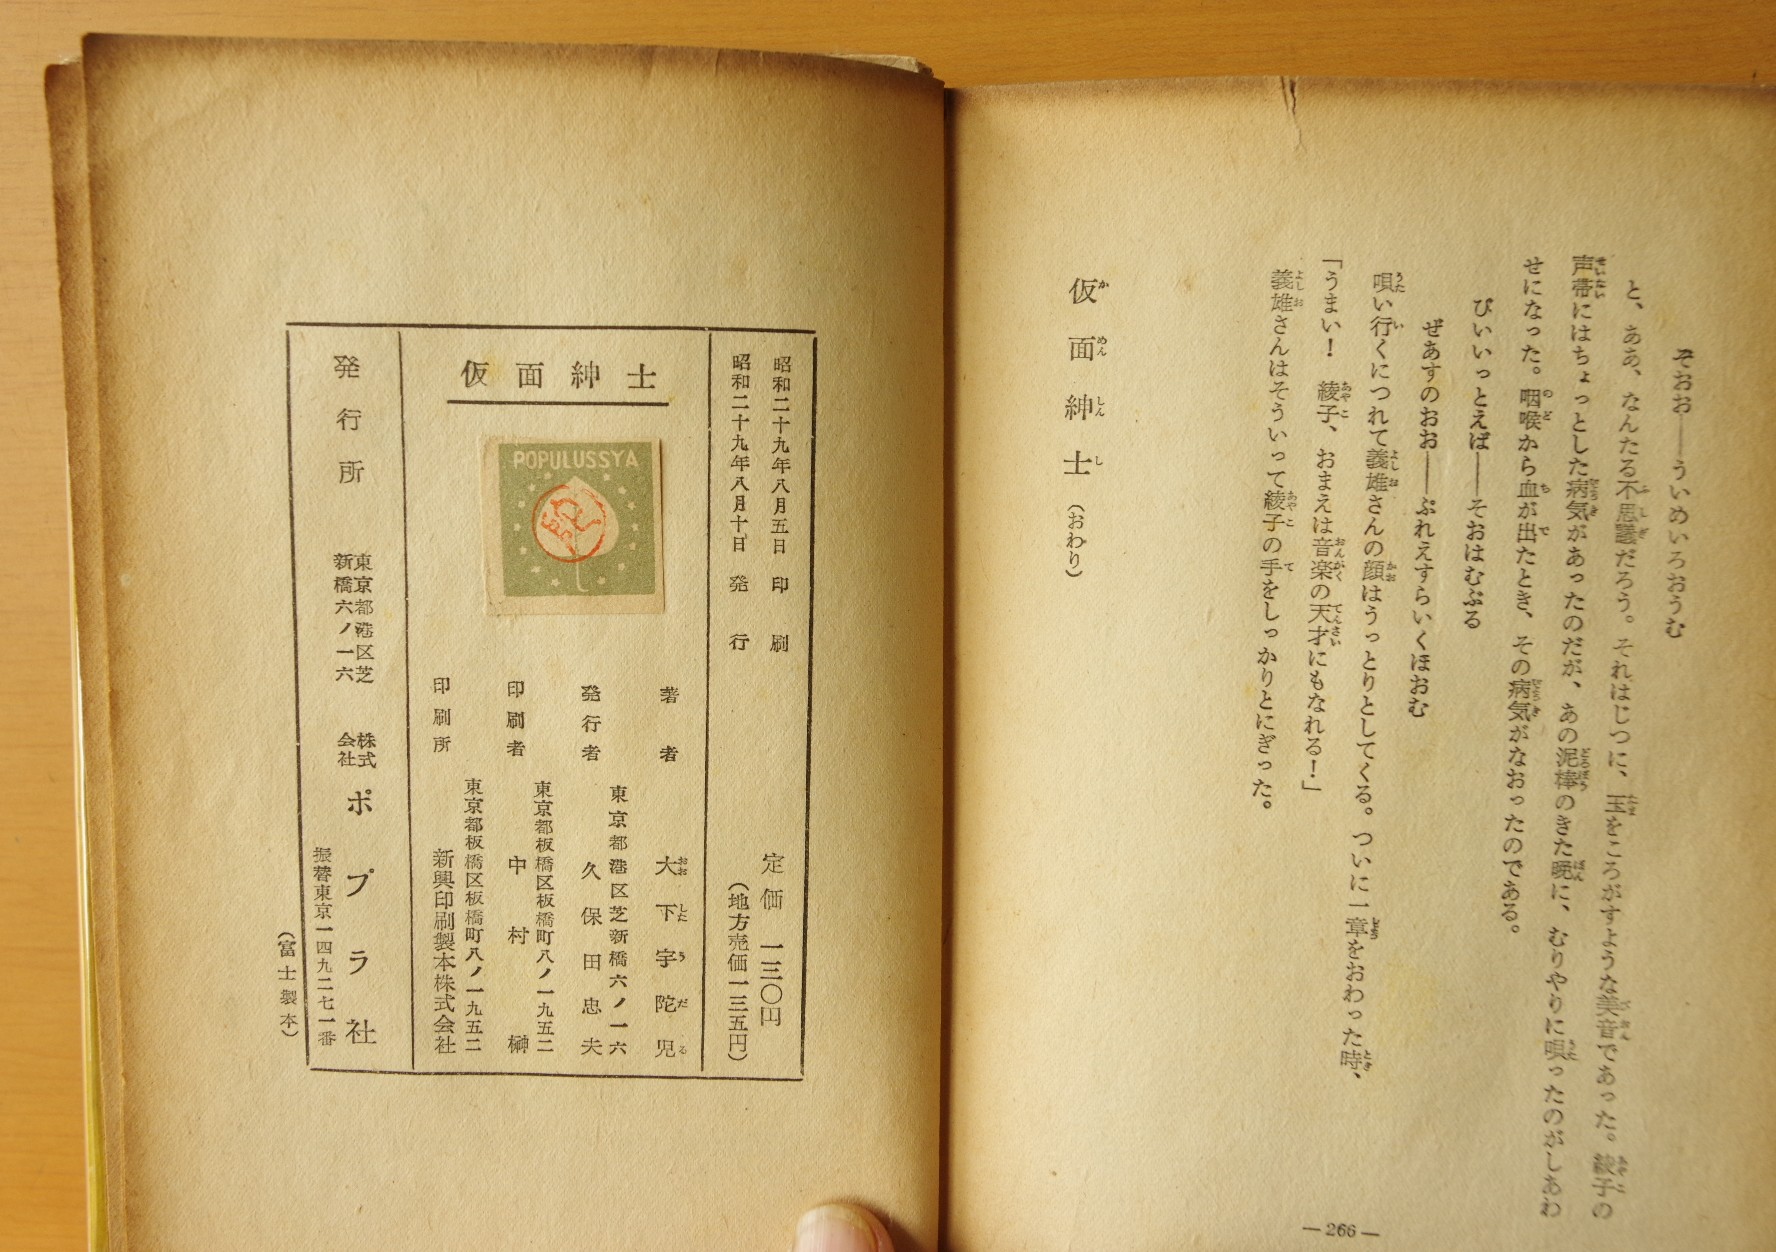 ぞおお――ういめいろおうむ
と、ああ、なんたる不思議だろう。それはじつに、玉をころがすような美音であった。綾子の
声帯にはちょっとした病気があったのだが、あの泥棒のきた晩に、むりやりに唄ったのがしあわ
せになった。咽喉から血が出たとき、その病気がなおったのである。
びいいっとえば――そおはむぶる
ぜあすのおお――ぷれえすらいくほおむ
唄い行くにつれて義雄さんの顔はうっとりとしてくる。ついに一章をおわった時、
「うまい! 綾子、おまえは音楽の天才にもなれる!」
義雄さんはそういって綾子の手をしっかりとにぎった。
仮面紳士(おわり)
―266―
昭和二十九年八月五日 印刷
昭和二十九年八月十日 発行
定価 一三〇円
(地方売価一三五円)
仮面紳士
POPULUSSYA
著者 大下宇陀児
東京都港区芝新橋六ノ一六
発行者 久保田忠夫
東京都板橋区板橋町八ノ一九五二
印刷者 中村榊
東京都板橋区板橋町八ノ一九五二
印刷所 新興印刷製本株式会社
発行所 東京都港区芝新橋六ノ一六 株式会社 ポプラ社
振替東京一四九二七一番
(富士製本)